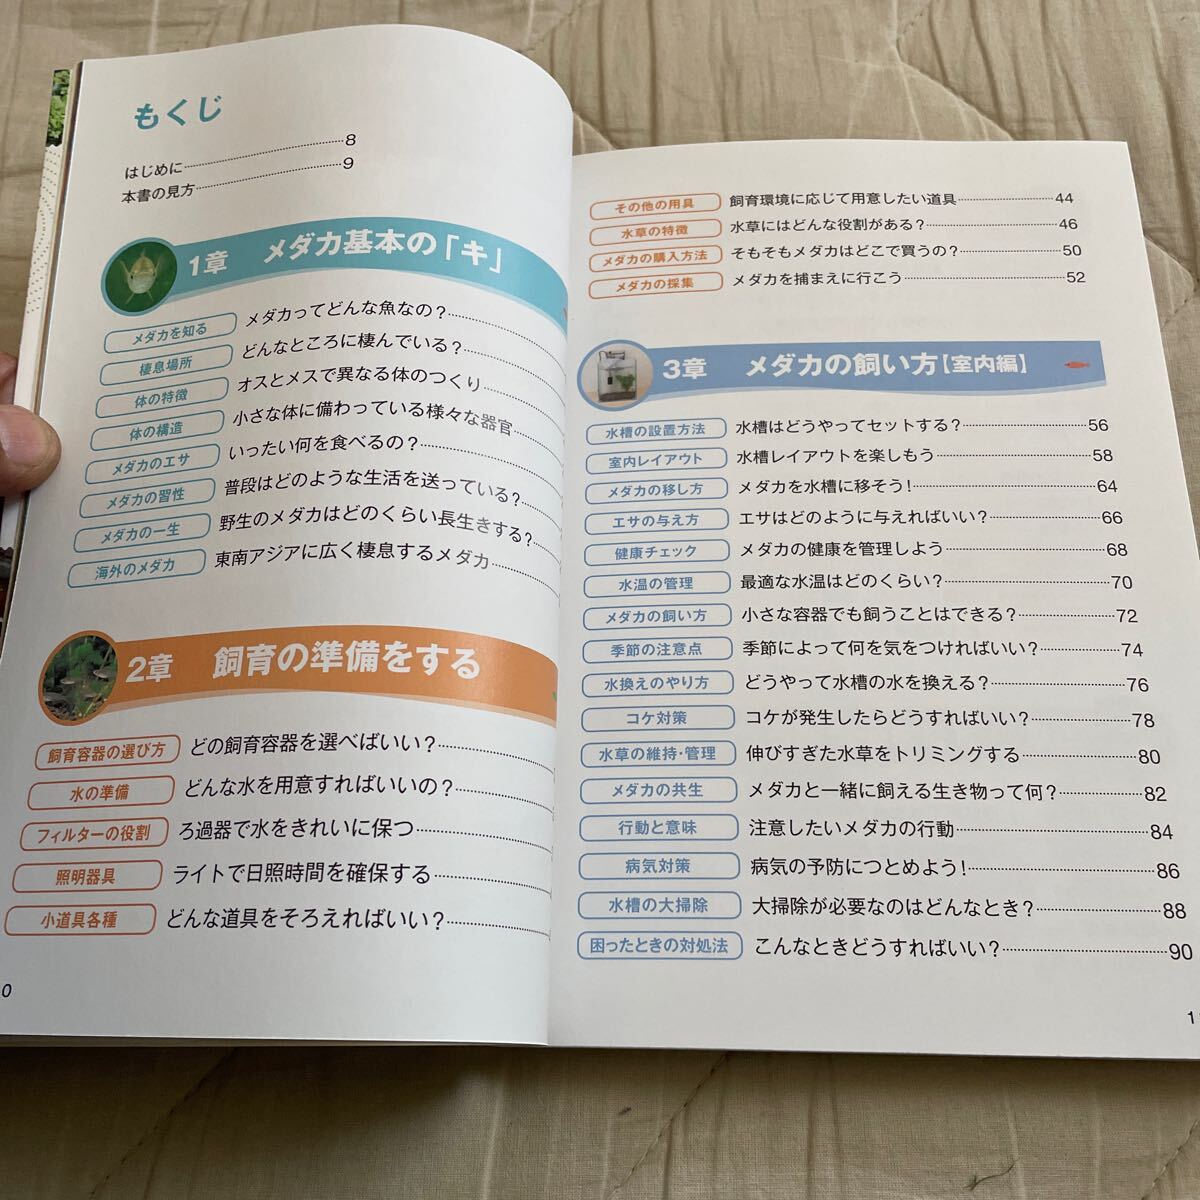 もくじ
はじめに 8
本書の見方 9
1章 メダカ基本の「キ」
メダカを知る メダカってどんな魚なの?
棲息場所 どんなところに棲んでいる?
体の特徴 オスとメスで異なる体のつくり
体の構造 小さな体に備わっている様々な器官
メダカのエサ いったい何を食べるの?
メダカの習性 普段はどのような生活を送っている?
メダカの一生 野生のメダカはどのくらい長生きする?
海外のメダカ 東南アジアに広く棲息するメダカ
2章 飼育の準備をする
飼育容器の選び方 どの飼育容器を選べばいい?
水の準備 どんな水を用意すればいいの?
フィルターの役割 ろ過器で水をきれいに保つ
照明器具 ライトで日照時間を確保する
小道具各種 どんな道具をそろえればいい?
0
その他の用具 飼育環境に応じて用意したい道具 44
水草の特徴 水草にはどんな役割がある? 46
メダカの購入方法 そもそもメダカはどこで買うの? 50
メダカの採集 メダカを捕まえに行こう 52
3章 メダカの飼い方【室内編】
水槽の設置方法 水槽はどうやってセットする? 56
室内レイアウト 水槽レイアウトを楽しもう 58
メダカの移し方 メダカを水槽に移そう! 64
エサの与え方 エサはどのように与えればいい? 66
健康チェック メダカの健康を管理しよう 68
水温の管理 最適な水温はどのくらい? 70
メダカの飼い方 小さな容器でも飼うことはできる? 72
季節の注意点 季節によって何を気をつければいい? 74
水換えのやり方 どうやって水槽の水を換える? 76
コケ対策 コケが発生したらどうすればいい? 78
水草の維持・管理 伸びすぎた水草をトリミングする 80
メダカの共生 メダカと一緒に飼える生き物って何? 82
行動と意味 注意したいメダカの行動 84
病気対策 病気の予防につとめよう! 86
水槽の大掃除 大掃除が必要なのはどんなとき? 88
困ったときの対処法 こんなときどうすればいい? 90
1